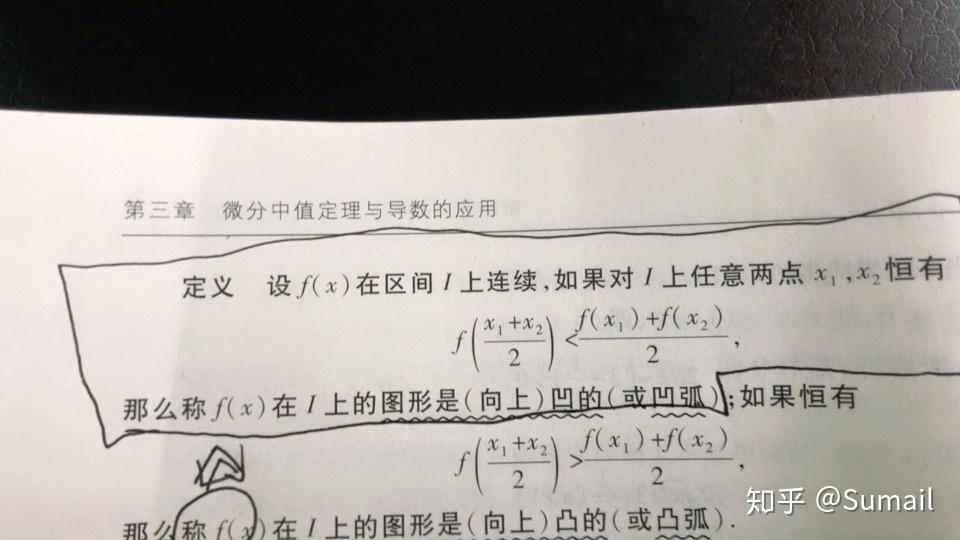 第三章 微分中值定理与导数的应用
定义 设 f(x) 在区间 I 上连续,如果对 I 上任意两点 x₁,x₂ 恒有
f((x₁+x₂)/2) < (f(x₁)+f(x₂))/2,
那么称 f(x) 在 I 上的图形是(向上)凹的(或凹弧);如果恒有
f((x₁+x₂)/2) > (f(x₁)+f(x₂))/2,
那么称 f(x) 在 I 上的图形是(向上)凸的(或凸弧).
知乎 @Sumail